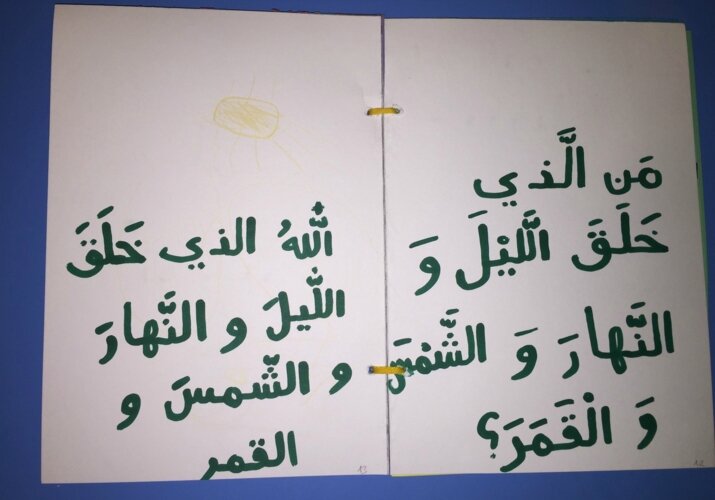 مَن الَّذي
خَلَقَ اللَّيْلَ وَ
النَّهارَ وَ الشَّمْسَ
وَ الْقَمَرَ؟
12
اللّٰهُ الذي خَلَقَ
اللَّيلَ و النَّهارَ
و الشَّمسَ و
القمر
13